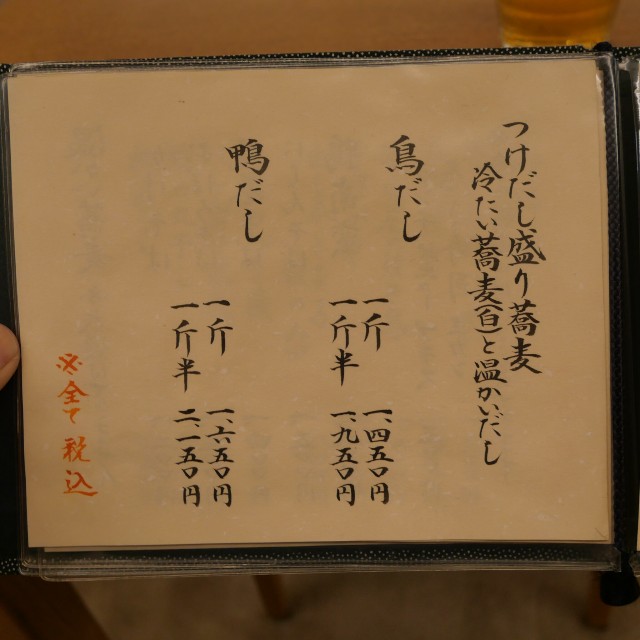 つけだし盛り蕎麦
冷たい蕎麦(白)と温かいだし
鳥だし
一斤 一、四五〇円
一斤半 一、九五〇円
鴨だし
一斤 一、六五〇円
一斤半 二、一五〇円
※全て税込